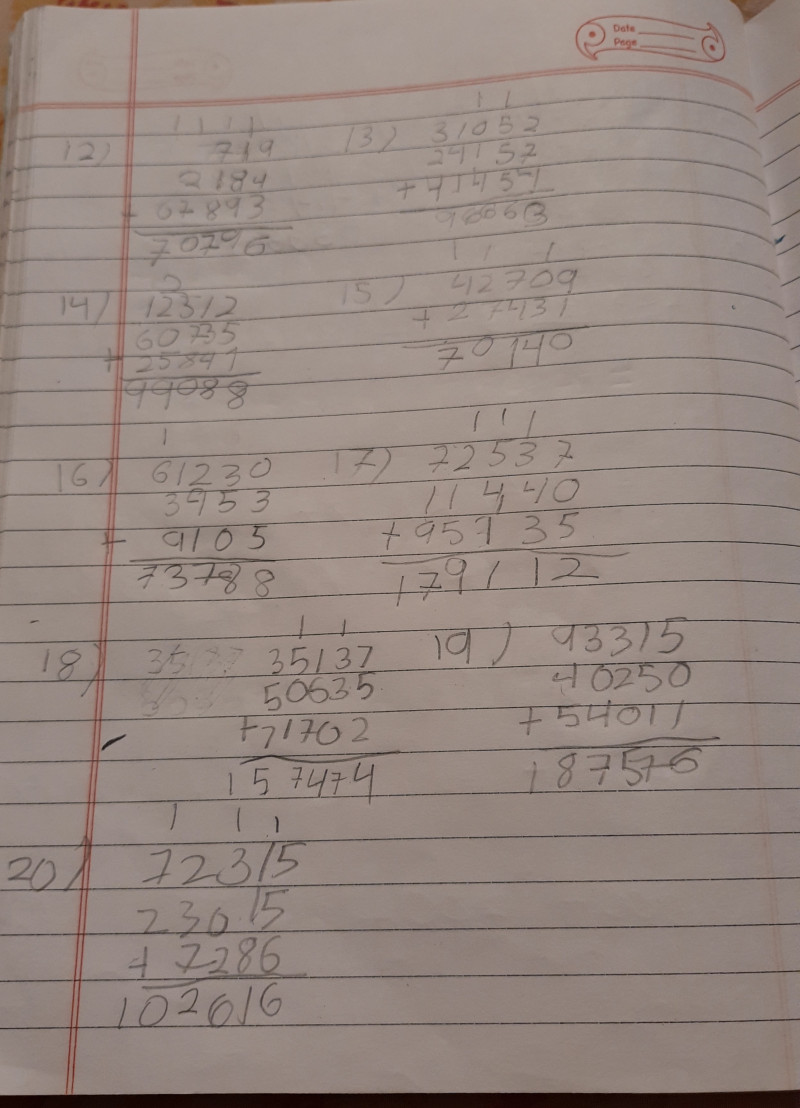 Date
Page
1 1 1 1
1 1
12) 719
13) 31052
2184
24157
+ 67893
+ 41454
70796
96663
2
1 1 1
14) 12312
15) 42709
60735
+ 27431
+ 25841
70140
99088
1
1 1 1
16) 61230
17) 72537
3453
11440
+ 9105
+95135
73788
179112
1 1
18) 35137
19) 93315
50635
40250
+71702
+54011
157474
187576
1 1 1
20) 72315
23015
+ 7286
102616